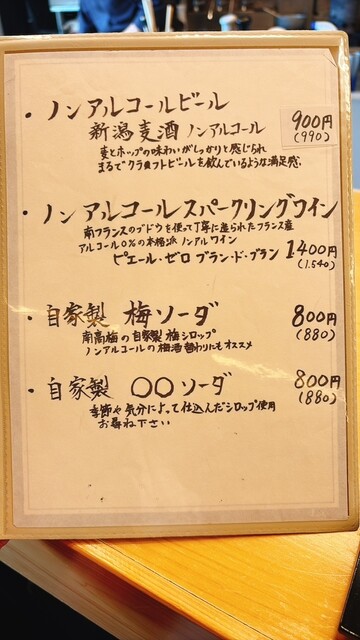 ・ノンアルコールビール
新潟麦酒 ノンアルコール
900円
(990)
麦とホップの味わいがしっかりと感じられ
まるでクラフトビールを飲んでいるような満足感.
・ノンアルコールスパークリングワイン
南フランスのブドウを使って丁寧に造られたフランス産
アルコール0%の本格派 ノンアルワイン
ピエール・ゼロ ブラン・ド・ブラン 1400円
(1.540)
・自家製 梅ソーダ 800円
(880)
南高梅の自家製 梅シロップ
ノンアルコールの梅酒替わりにもオススメ
・自家製 〇〇ソーダ 800円
(880)
季節や気分によって仕込んだシロップ使用
お尋ね下さい